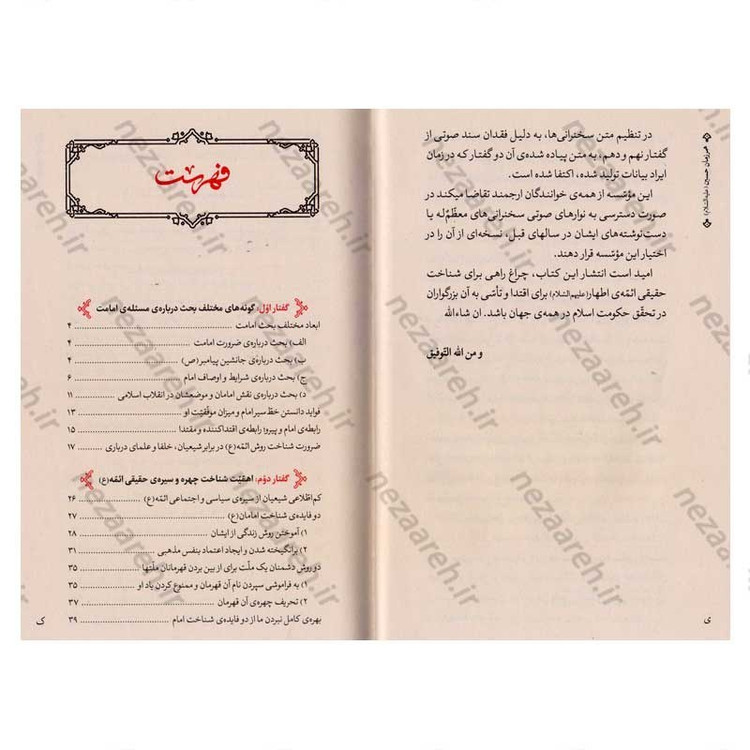 هم‌رزمان حسین (علیه‌السّلام)
در تنظیم متن سخنرانی‌ها، به دلیل فقدان سند صوتی از
گفتار نهم و دهم، به متن پیاده شده‌ی آن دو گفتار که در زمان
ایراد بیانات تولید شده، اکتفا شده است.
این مؤسسه از همه‌ی خوانندگان ارجمند تقاضا میکند در
صورت دسترسی به نوارهای صوتی سخنرانی‌های معظّمٌ‌له یا
دست‌نوشته‌های ایشان در سالهای قبل، نسخه‌ای از آن را در
اختیار این مؤسّسه قرار دهند.
امید است انتشار این کتاب، چراغ راهی برای شناخت
حقیقی ائمّه‌ی اطهار(علیهم‌السّلام) برای اقتدا و تأسّی به آن بزرگواران
در تحقّق حکومت اسلام در همه‌ی جهان باشد. ان شاءالله
و من الله التّوفیق
ی
فهرست
گفتار اوّل: گونه‌های مختلف بحث درباره‌ی مسئله‌ی امامت
ابعاد مختلف بحث امامت ۴
الف) بحث درباره‌ی ضرورت امامت ۴
ب) بحث درباره‌ی جانشین پیامبر(ص) ۴
ج) بحث درباره‌ی شرایط و اوصاف امام ۶
د) بحث درباره‌ی نقش امامان و موضعشان در انقلاب اسلامی ۱۱
فواید دانستن خطّ سیر امام و میزان موفّقیّت او ۱۳
رابطه‌ی امام و پیرو؛ رابطه‌ی اقتداکننده و مقتدا ۱۵
ضرورت شناخت روش ائمّه(ع) در برابر شیعیان، خلفا و علمای درباری ۱۷
گفتار دوّم: اهمّیّت شناخت چهره و سیره‌ی حقیقی ائمّه(ع)
کم‌اطّلاعی شیعیان از سیره‌ی سیاسی و اجتماعی ائمّه(ع) ۲۶
دو فایده‌ی شناخت امامان(ع) ۲۷
۱) آموختن روش زندگی از ایشان ۲۸
۲) برانگیخته شدن و ایجاد اعتماد بنفس مذهبی ۳۱
دو روش دشمنان یک ملّت برای از بین بردن قهرمانان ملّتها ۳۵
۱) به فراموشی سپردن نام آن قهرمان و ممنوع کردن یاد او ۳۵
۲) تحریف چهره‌ی آن قهرمان ۳۷
بهره‌ی کامل نبردن ما از دو فایده‌ی شناخت امام ۳۹
ک
nezaareh.ir